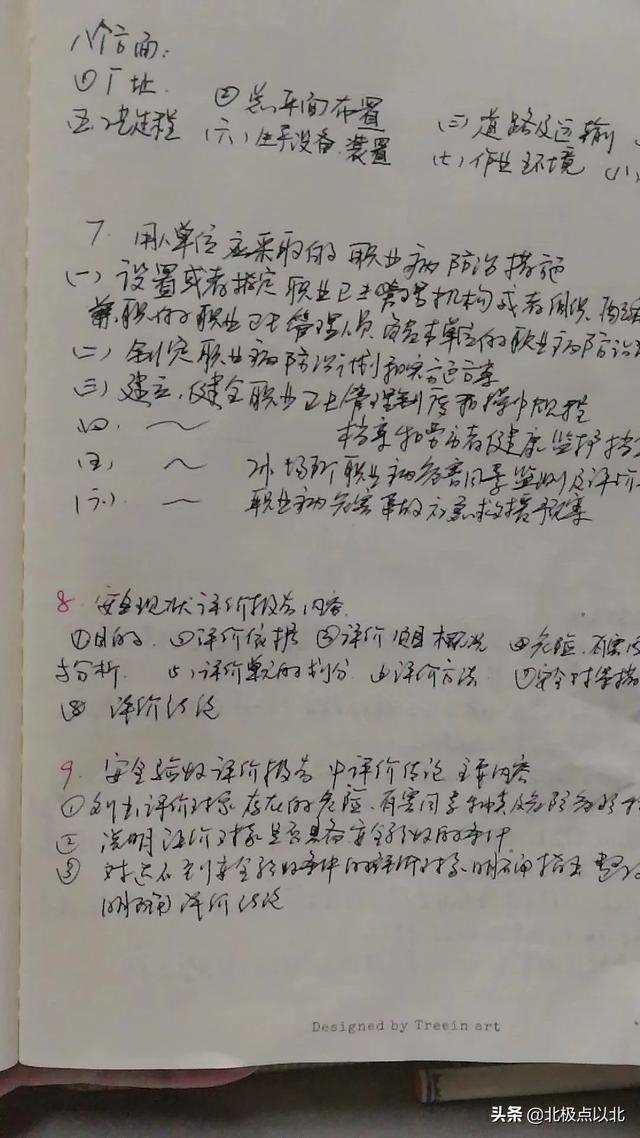 八个方面：
①厂址
②总平面布置
(三)道路及运输
五、工艺过程 (六)生产设备、装置 (七)作业环境 (八)
7. 用人单位应采取的职业病防治措施
(一)设置或者指定职业卫生管理机构或者组织、配
兼职的职业卫生管理人员，负责本单位的职业病防治
(二)制定职业病防治计划和实施方案
(三)建立、健全职业卫生管理制度和操作规程
四、～ 档案和劳动者健康监护档
(五) ～ 工作场所职业病危害因素监测及评价
(六) ～ 职业病危害事故应急救援预案
8. 安全现状评价报告内容
①目的 ②评价依据 ③评价项目概况 ④危险、有害
与分析 (5)评价单元的划分 ⑥评价方法 ⑦安全对策措
⑧ 评价结论
9. 安全验收评价报告中评价结论主要内容
①列出评价对象存在的危险、有害因素种类及危险危
② 说明评价对象是否具备安全验收的条件
③ 对达不到安全验收条件的评价对象，明确指出整改
明确评价结论
Designed by Treein art
头条 @北极点以北